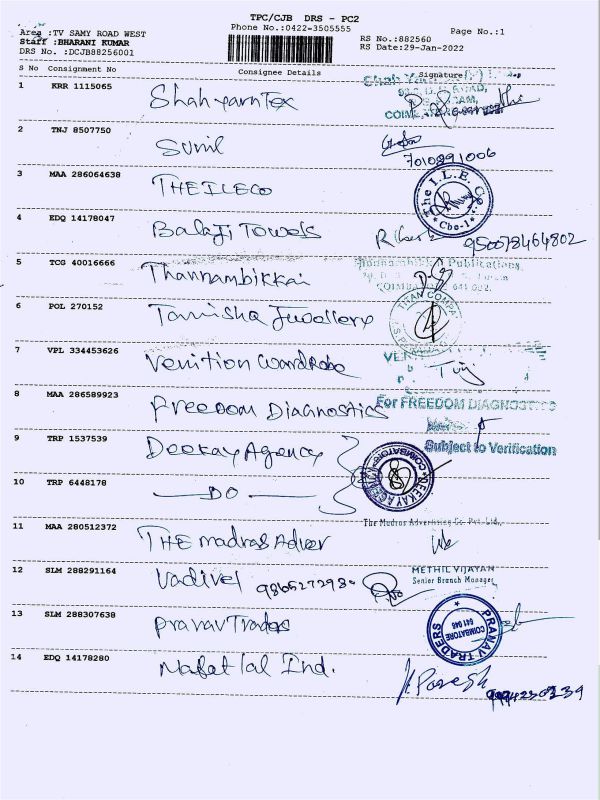 TPC/CJB DRS - PC2
Phone No.:0422-3505555
Page No.:1
Area :TV SAMY ROAD WEST
Staff :BHARANI KUMAR
DRS No. :DCJB88256001
RS No.:882560
RS Date:29-Jan-2022
S No Consignment No Consignee Details Signature
1 KRR 1115065 Shah yarn Tex
2 TNJ 8507750 Sunil
7010891006
3 MAA 286064638 THE ILECO
The I.L.E. Co Cbe-1
4 EDQ 14178047 Balaji Towels
950078464802
5 TCG 40016666 Thannambikkai
Publications
6 POL 270152 Tanisha Jwellery
7 VPL 334453626 Venition Wardrobe
8 MAA 286589923 Freedom Diagnostics
For FREEDOM DIAGNOSTICS
Subject to Verification
9 TRP 1537539 Deekay Agency
DEEKAY AGENCY COIMBATORE
10 TRP 6448178 —DO—
11 MAA 280512372 THE madras Adver
The Madras Advertising Co. Pvt. Ltd.,
METHIL VIJAYAN
Senior Branch Manager
12 SLM 288291164 Vadivel
13 SLM 288307638 Pranav Trades
PRANAV TRADERS COIMBATORE 641 046
14 EDQ 14178280 Mafat lal Ind.